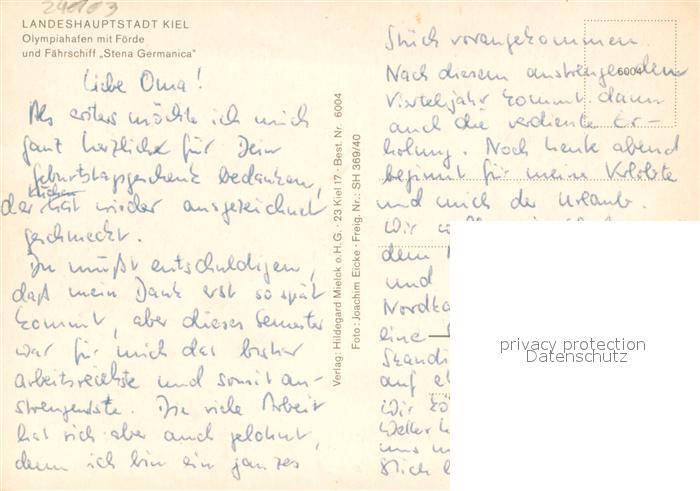 240103
LANDESHAUPTSTADT KIEL
Olympiahafen mit Förde
und Fährschiff „Stena Germanica"
Liebe Oma!
Als erstes möchte ich mich
ganz herzlich für Dein
Geburtstagsgeschenk bedanken,
der Kuchen hat wieder ausgezeichnet
geschmeckt.
Du mußt entschuldigen,
daß mein Dank erst so spät
kommt, aber dieses Semester
war für mich das bisher
arbeitsreichste und somit an-
strengendste. Die viele Arbeit
hat sich aber auch gelohnt,
denn ich bin ein ganzes
Verlag: Hildegard Mielck o.H.G. · 23 Kiel 17 · Best. Nr. 6004
Foto: Joachim Eicke · Freig. Nr.: SH 369/40
6004
Stück vorangekommen.
Nach diesem anstrengenden
Vierteljahr kommt dann
auch die verdiente Er-
holung. Noch heute abend
beginnt für meine Verlobte
und mich der Urlaub.
Wir
dem
und
eine
auf
Wir
uns
privacy protection
Datenschutz